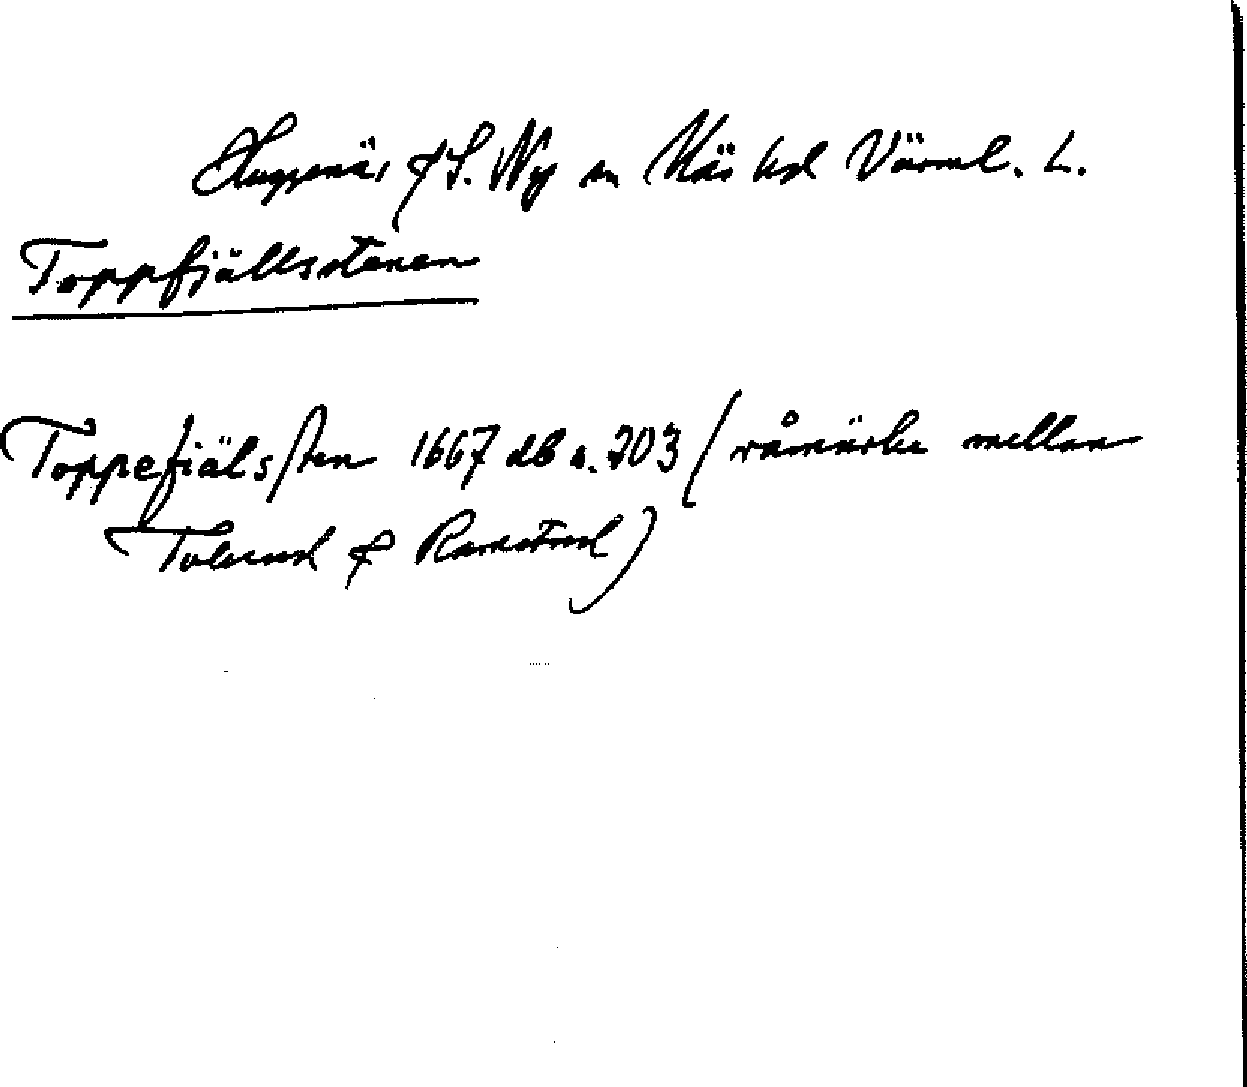 Huggenäs & S. Ny sn Näs hd Värml. L.
Toppfjällsstenen
Toppefiälssten 1667 db s. 703 (råmärke mellan
Tolerud & Ramstrud)